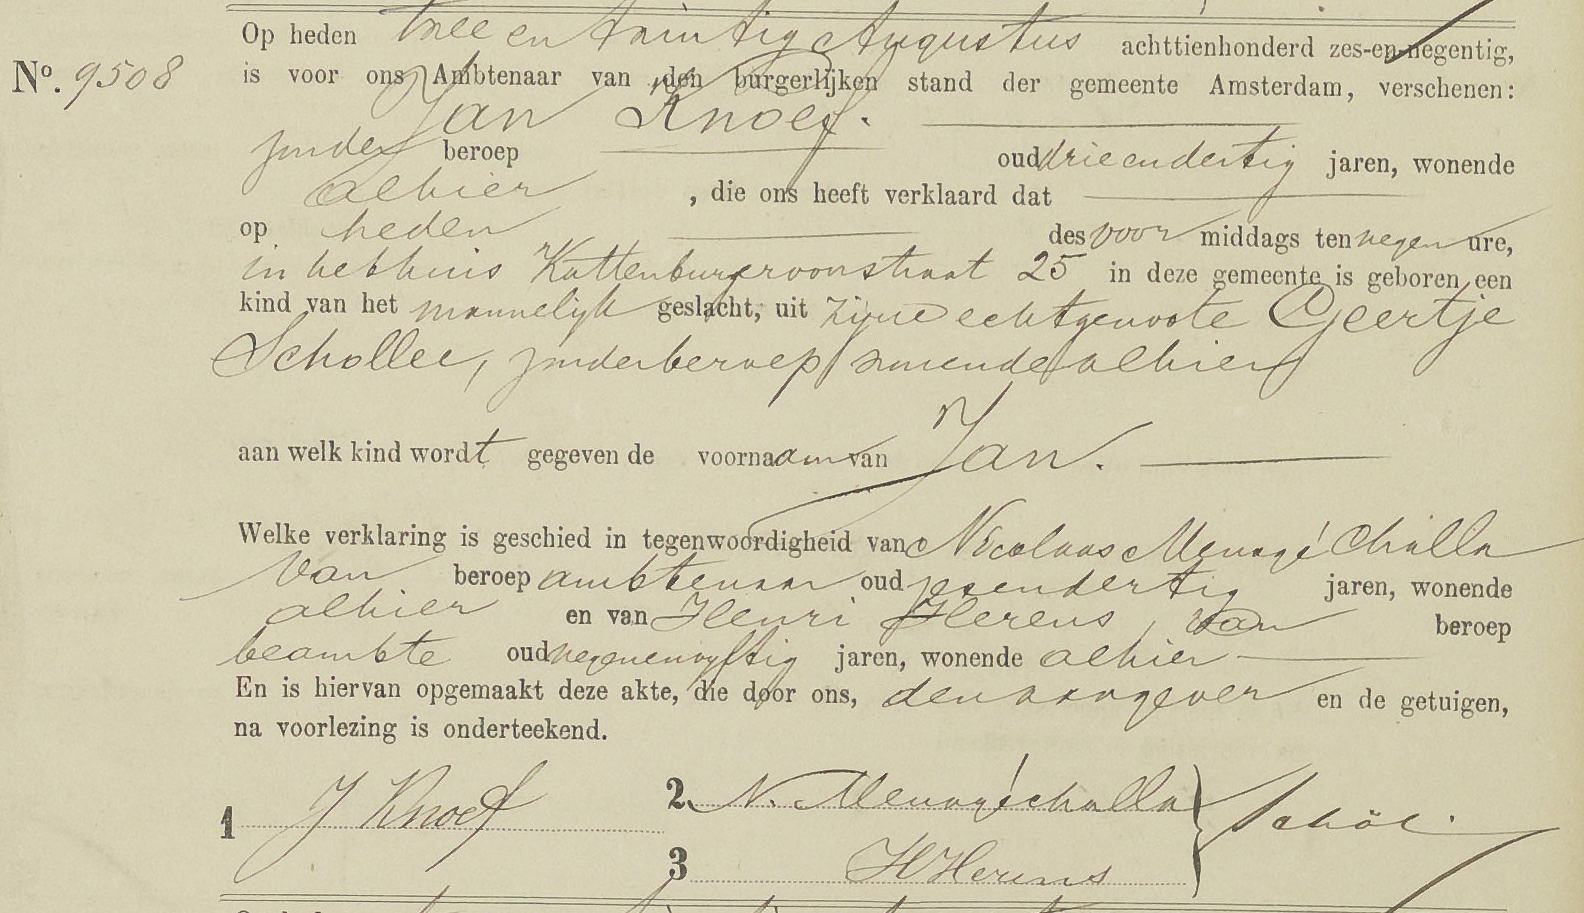 Op heden twee en twintig Augustus achttienhonderd zes-en-negentig,
No. 9508
is voor ons Ambtenaar van den burgerlijken stand der gemeente Amsterdam, verschenen:
Jan Knoef.
zonder beroep oud drieendertig jaren, wonende
alhier , die ons heeft verklaard dat
op heden des voor middags ten negen ure,
in het huis Kattenburgervoorstraat 25 in deze gemeente is geboren een
kind van het mannelijk geslacht, uit zijne echtgenoote Geertje
Schollee, zonder beroep, wonende alhier
aan welk kind wordt gegeven de voornaam van Jan.
Welke verklaring is geschied in tegenwoordigheid van Nicolaas Menagé Challa
van beroep ambtenaar oud zesendertig jaren, wonende
alhier en van Henri Herens, van beroep
beambte oud negenenvyftig jaren, wonende alhier
En is hiervan opgemaakt deze akte, die door ons, den aangever en de getuigen,
na voorlezing is onderteekend.
1 J Knoef 2 N. Menagé challa
3 HHerens